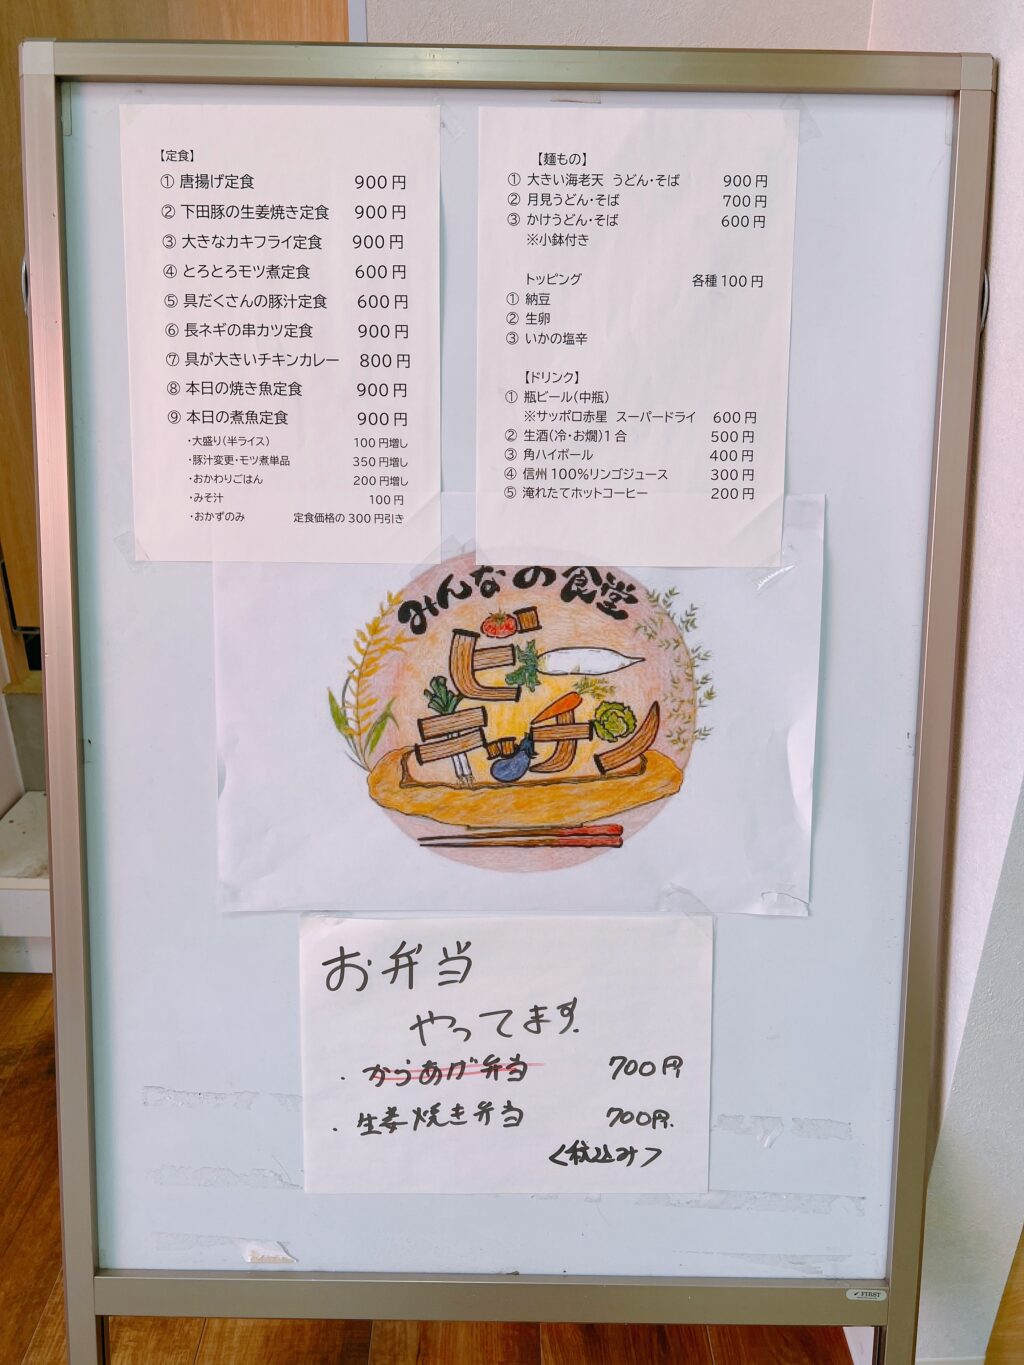 【定食】
① 唐揚げ定食 900円
② 下田豚の生姜焼き定食 900円
③ 大きなカキフライ定食 900円
④ とろとろモツ煮定食 600円
⑤ 具だくさんの豚汁定食 600円
⑥ 長ネギの串カツ定食 900円
⑦ 具が大きいチキンカレー 800円
⑧ 本日の焼き魚定食 900円
⑨ 本日の煮魚定食 900円
・大盛り(半ライス) 100円増し
・豚汁変更・モツ煮単品 350円増し
・おかわりごはん 200円増し
・みそ汁 100円
・おかずのみ 定食価格の300円引き
【麺もの】
① 大きい海老天 うどん・そば 900円
② 月見うどん・そば 700円
③ かけうどん・そば 600円
※小鉢付き
トッピング 各種100円
① 納豆
② 生卵
③ いかの塩辛
【ドリンク】
① 瓶ビール(中瓶)
※サッポロ赤星 スーパードライ 600円
② 生酒(冷・お燗)1合 500円
③ 角ハイボール 400円
④ 信州100%リンゴジュース 300円
⑤ 淹れたてホットコーヒー 200円
みんなの食堂
お弁当
やってます
・からあげ弁当 700円
・生姜焼き弁当 700円.
<税込み>
FIRST